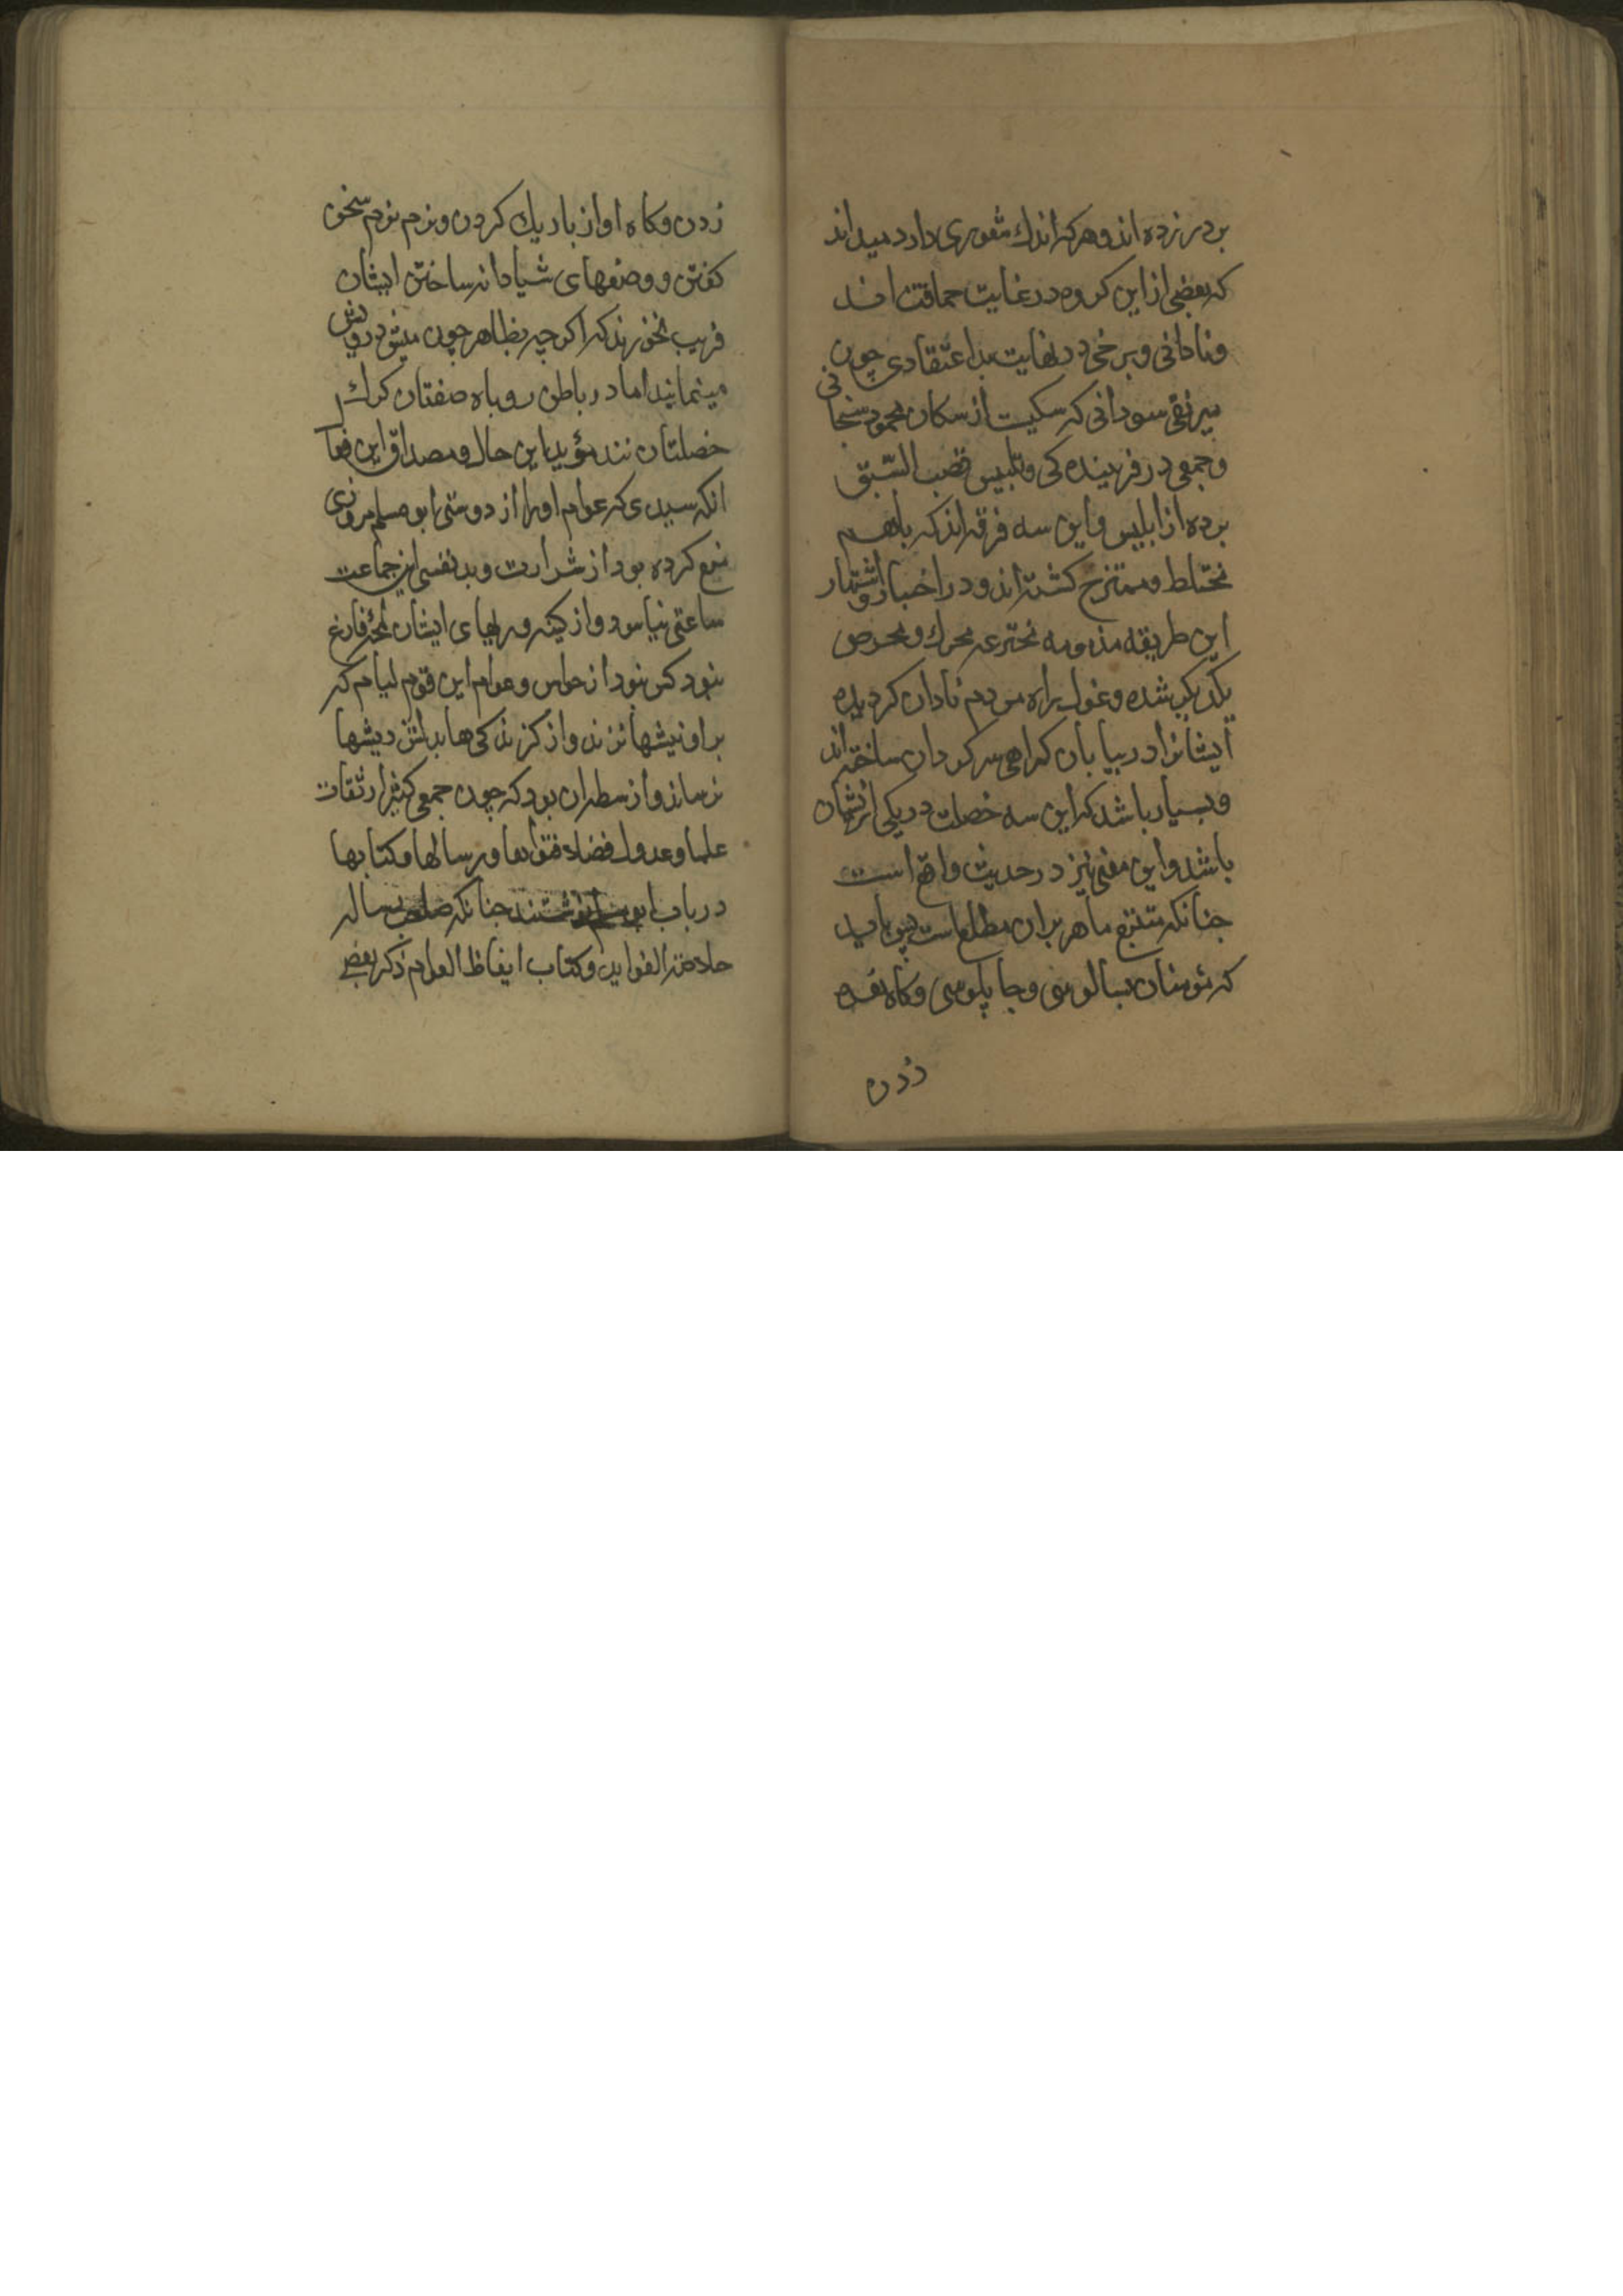 بردر زده اند و هر که اندك شعوری دارد میداند
که بعضی از این کروه در غایت حماقت اند
و نادانی و برخی در نهایت بد اعتقادی چون
میر تقی سودانی که سکیست از سکان محمود پسیخانی
و جمعی در فریبنده کی و تلبیس قصب السّبق
برده از ابلیس و این سه فرقه اند که باهم
مختلط و ممتزج کشته اند و در اخبار و اشتهار
این طریقه مذمومه مخترعه محرك و محرص
یکدیکر شده و غول راه مردم نادان کردیده
ایشانرا در بیابان کمراهی سرکردان ساخته اند
و بسیار باشد که این سه خصلت در یکی از ایشان
باشد و این معنی نیز در حدیث واقع است
چنانکه متتبع ماهر بران مطلع است پس باید
که مؤمنان بسالوسی و چاپلوسی و کاه نعره
زدن
زدن و کاه اواز باریك کردن و نرم نرم سخن
کفتن و وضعهای شیادانه ساختن ایشان
فریب نخورند که اکر چه بظاهر چون میش درویش
مینمایند اما در باطن روباه صفتان کرك
خصلتان نند مؤید این حال و مصداق این مقال
انکه سیدی که عوام او را از دوستی ابو مسلم مروزی
منع کرده بود از شرارت و بد نفسی این جماعت
ساعتی نیاسود و از کینه وریهای ایشان لحظه فارغ
نبود کس نبود از خواص و عوام این قوم لیام که
بر او نیشها نزند و از کزندکی ها بدلش ریشها
نرساند و از سطران بود که چون جمعی کثیر از ثقات
علما و عدول فضلا فتواها و رسالها و کتابها
در باب ابو مسلم نوشتند چنانکه صاحب رساله
خلاصة الفواید و کتاب ایقاظ العوام ذکر بعضی